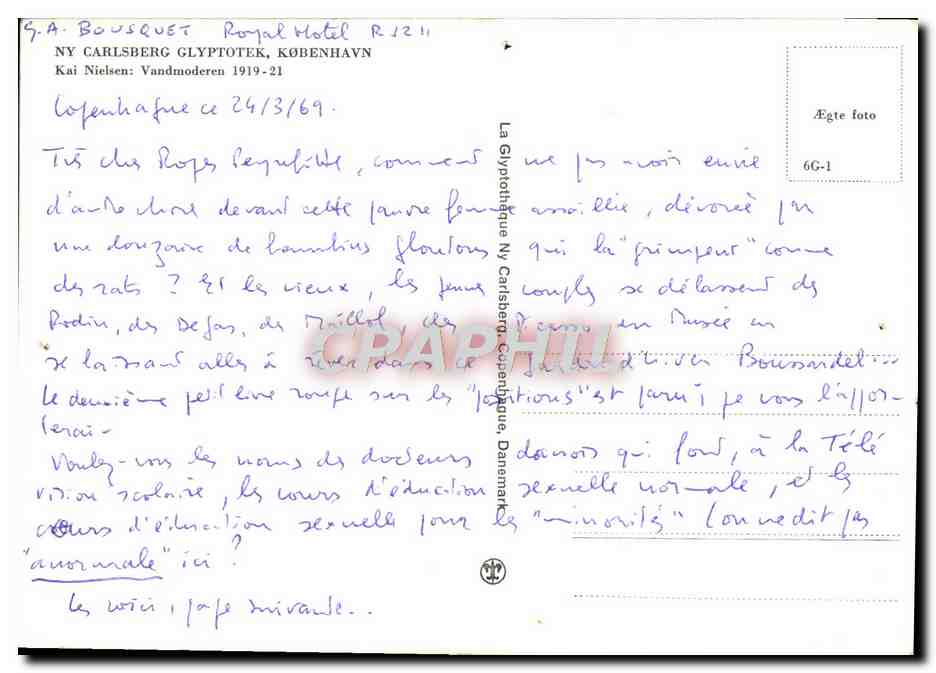 G.A. BOUSQUET Royal Hotel R 1211
NY CARLSBERG GLYPTOTEK, KØBENHAVN
Kai Nielsen: Vandmoderen 1919-21
Ægte foto
6G-1
Copenhague ce 24/3/69.
Très cher Roger Peyrefitte, comment ne pas avoir envie
d'autre chose devant cette pauvre femme assaillie, dévorée par
une douzaine de bambins gloutons qui la "grimpent" comme
des rats ? Et les vieux, les jeunes couples se délassent des
Rodin, des Degas, des Maillol, des Picasso du Musée en
se laissant aller à rêver dans ce Jardin d'hiver Boussardel...
Le deuxième petit livre rouge sur les "positions" est paru; je vous l'appor-
terai-
Voulez-vous les noms des docteurs danois qui font, à la Télé
vision scolaire, les cours d'éducation sexuelle normale, et les
cours d'éducation sexuelle pour les "minorités" (on ne dit pas
"anormale" ici ?
Les voici, page suivante...
La Glyptothèque Ny Carlsberg, Copenhague, Danemark
CPAPHIL